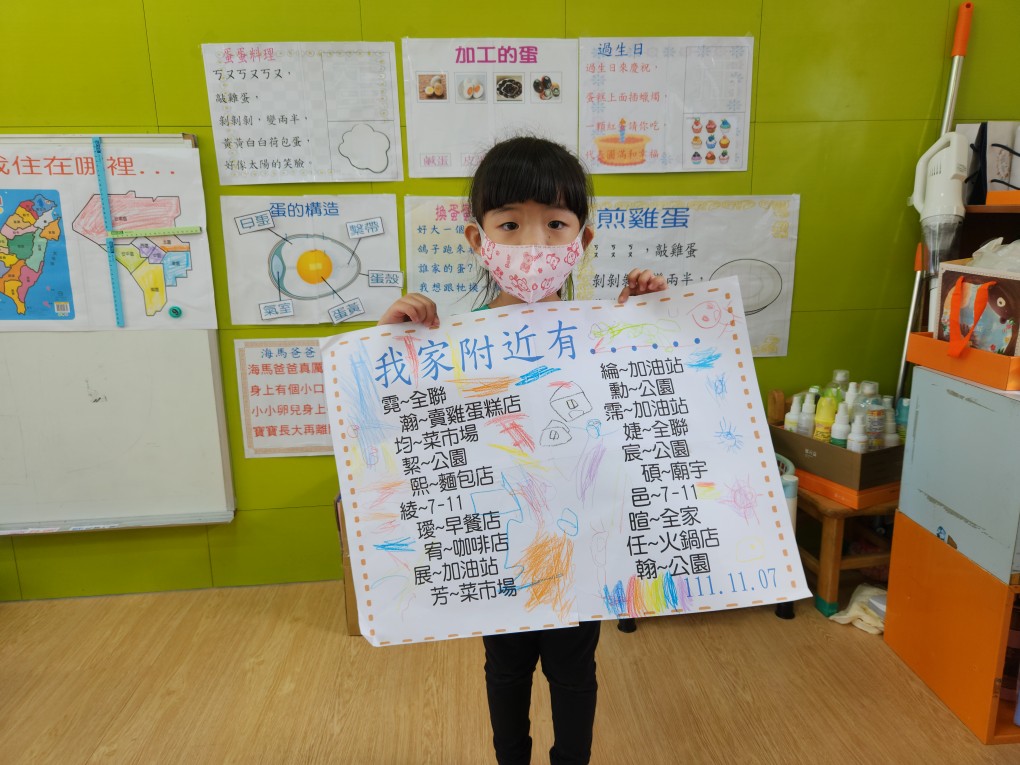 蛋蛋料理
ㄎㄡㄎㄡㄎㄡ，
敲雞蛋，
剝剝剝，變兩半，
黃黃白白荷包蛋，
好像太陽的笑臉。
加工的蛋
鹹蛋
過生日
過生日來慶祝，
蛋糕上面插蠟燭，
一顆紅
請你吃，
代表圓滿和幸福。
我住在哪裡...
蛋的構造
白蛋
繫帶
蛋殼
氣室
蛋黃
換蛋
好大一個
鴿子跑來
誰家的蛋？
我想跟牠
煎雞蛋
敲雞蛋
剝剝
兩半，
海馬爸爸
海馬爸爸真厲
身上有個小口
小小卵兒身上
寶寶長大再離
我家附近有......
霓~全聯
瀚~賣雞蛋糕店
均~菜市場
絜~公園
熙~麵包店
綾~7-11
璦~早餐店
宥~咖啡店
展~加油站
芳~菜市場
綸~加油站
勳~公園
霈~加油站
婕~全聯
宸~公園
碩~廟宇
邑~7-11
暄~全家
任~火鍋店
翰~公園
111.11.07